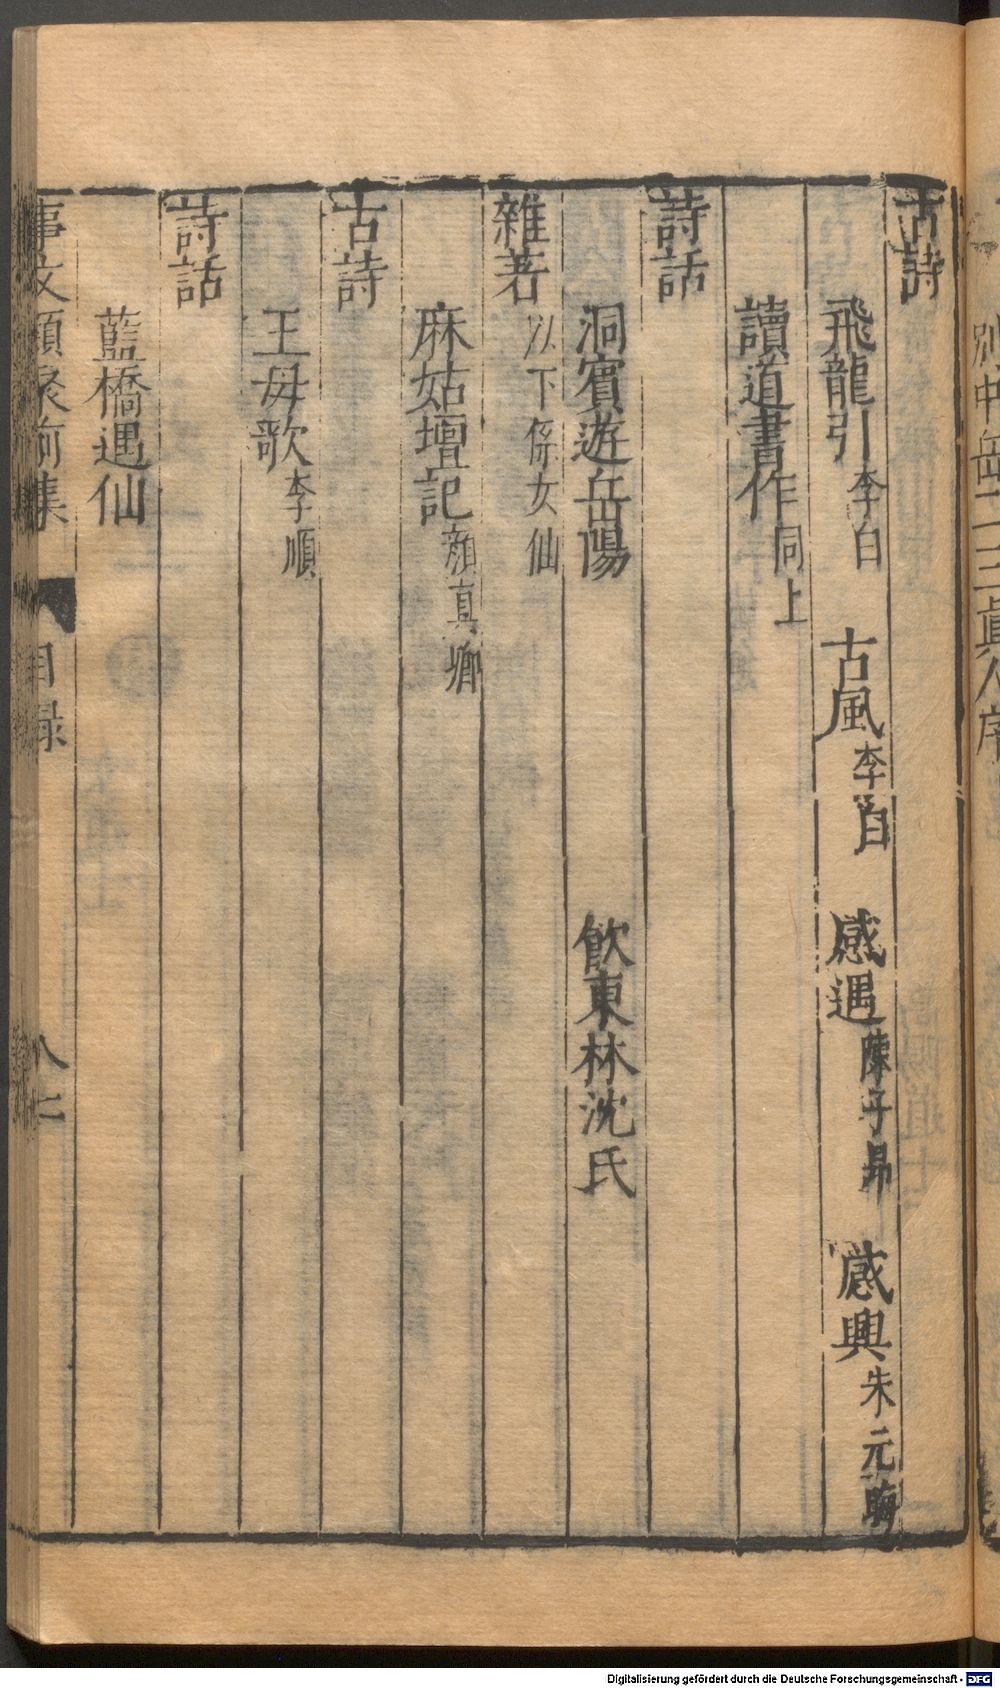 別中岳二三真人序
古詩
飛龍引李白 古風李白 感遇陳子昂 感興朱元晦
讀道書作同上
詩話
洞賓遊岳陽 飲東林沈氏
雜著以下係女仙
麻姑壇記顔真卿
古詩
王母歌李順
詩話
藍橋遇仙
事文類聚前集 目録
Digitalisierung gefördert durch die Deutsche Forschungsgemeinschaft - DFG